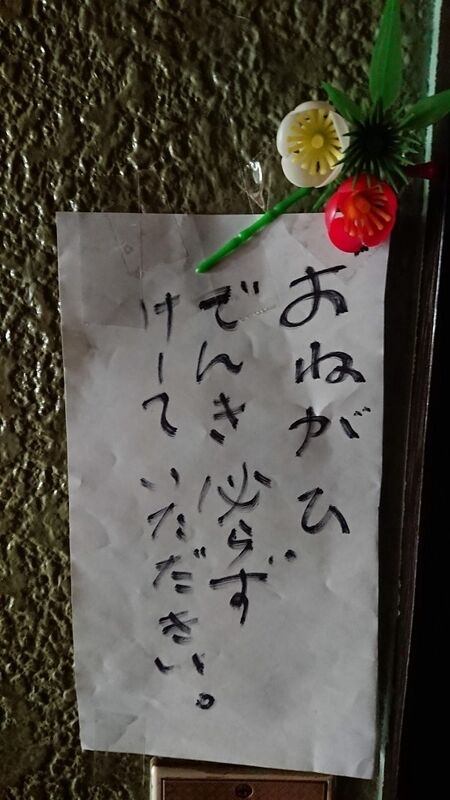 おねがひ
でんき必らず
けして いただきい。